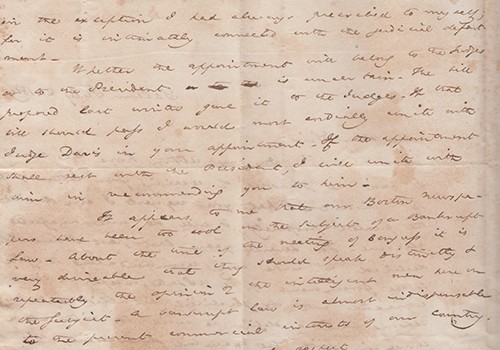 in the exception I had always prescribed to myself,
for it is intimately connected with the judicial depart
ment -
Whether the appointment will belong to the Judges
or to the President is uncertain - The bill
proposed last winter gave it to the Judges. If that
bill should pass I would most cordially unite with
Judge Davis in your appointment - If the appointment
shall rest with the President, I will unite with
him in recommending you to him -
It appears to me that our Boston newspa-
pers have been too cool on the subject of a Bankrupt
Law - About the time of the meeting of Congress it is
very desireable that they should speak distinctly &
repeatedly the opinion of the intelligent men here on
the subject - A bankrupt law is almost indispensable
to the present commercial interests of our Country.
respect